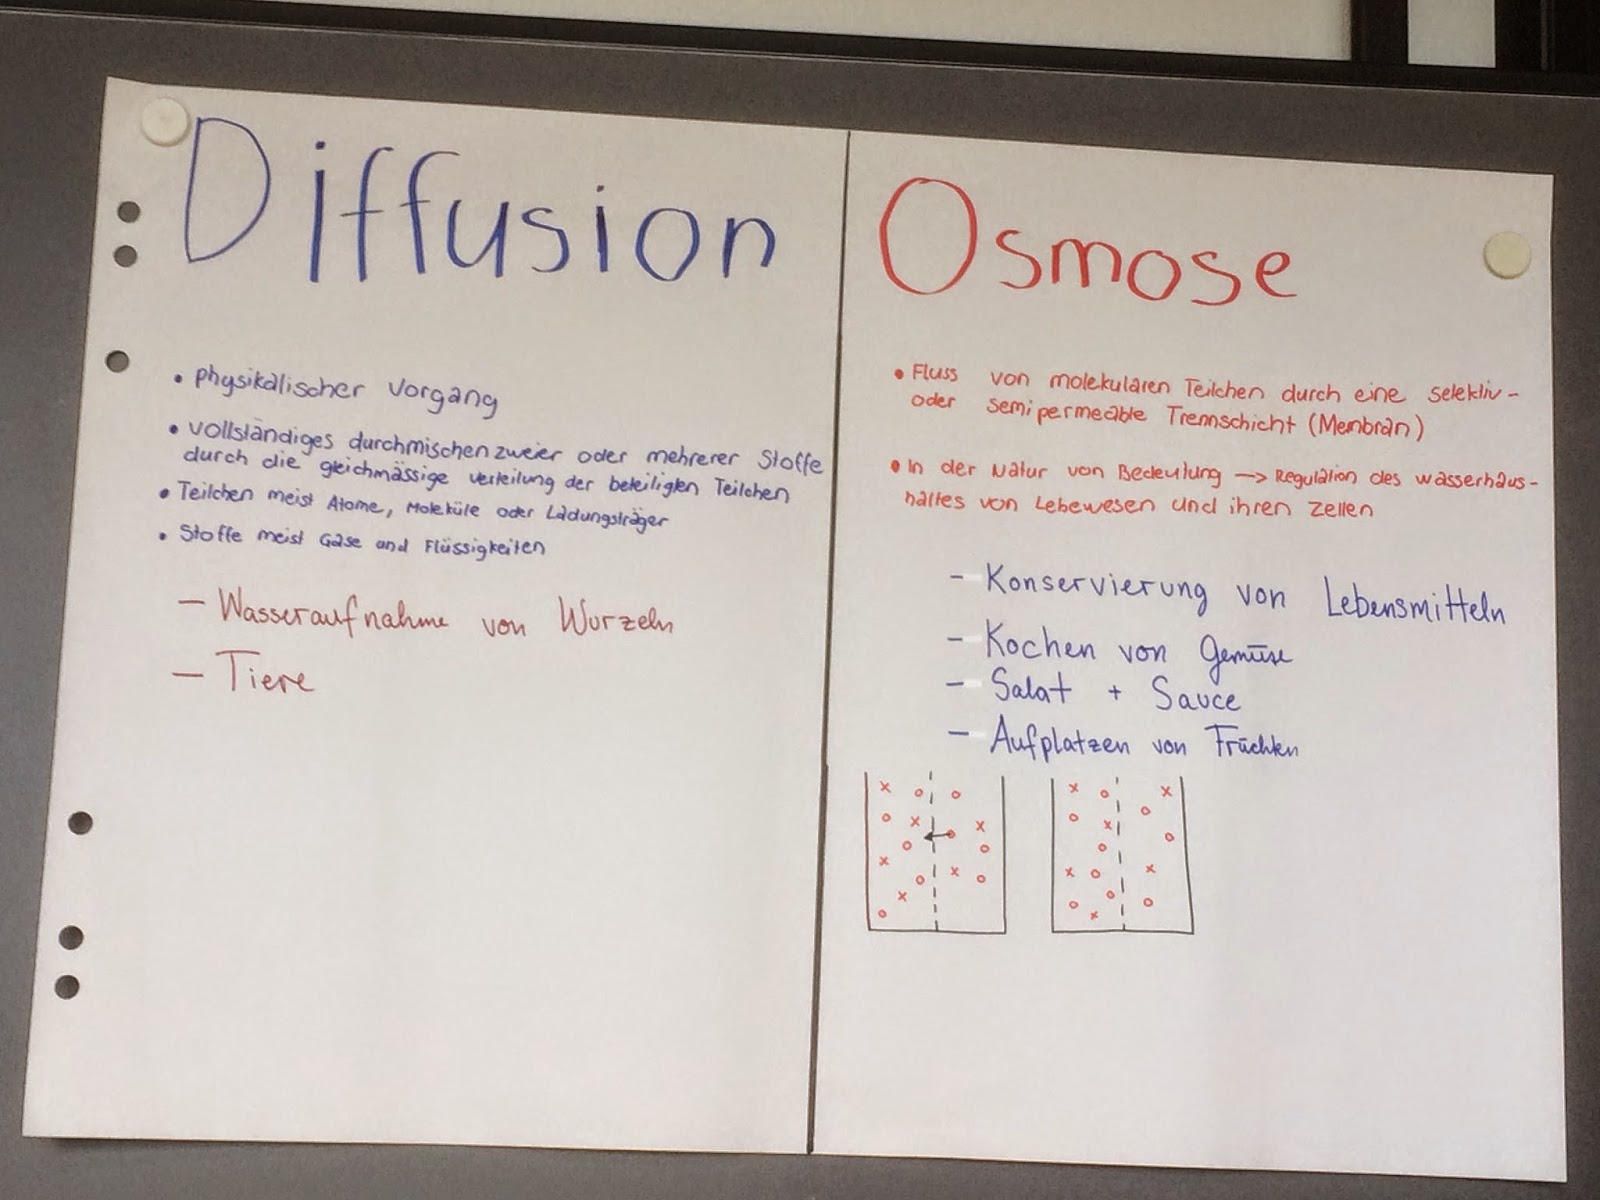 Diffusion
• physikalischer Vorgang
• vollständiges durchmischen zweier oder mehrerer Stoffe
durch die gleichmässige verteilung der beteiligten Teilchen
• Teilchen meist Atome, Moleküle oder Ladungsträger
• Stoffe meist Gase and Flüssigkeiten
– Wasseraufnahme von Wurzeln
– Tiere
Osmose
• Fluss von molekularen Teilchen durch eine selektiv-
oder semipermeable Trennschicht (Membran)
• In der Natur von Bedeutung → Regulation des wasserhaus-
haltes von Lebewesen und ihren Zellen
– Konservierung von Lebensmitteln
– Kochen von Gemüse
– Salat + Sauce
– Aufplatzen von Früchten